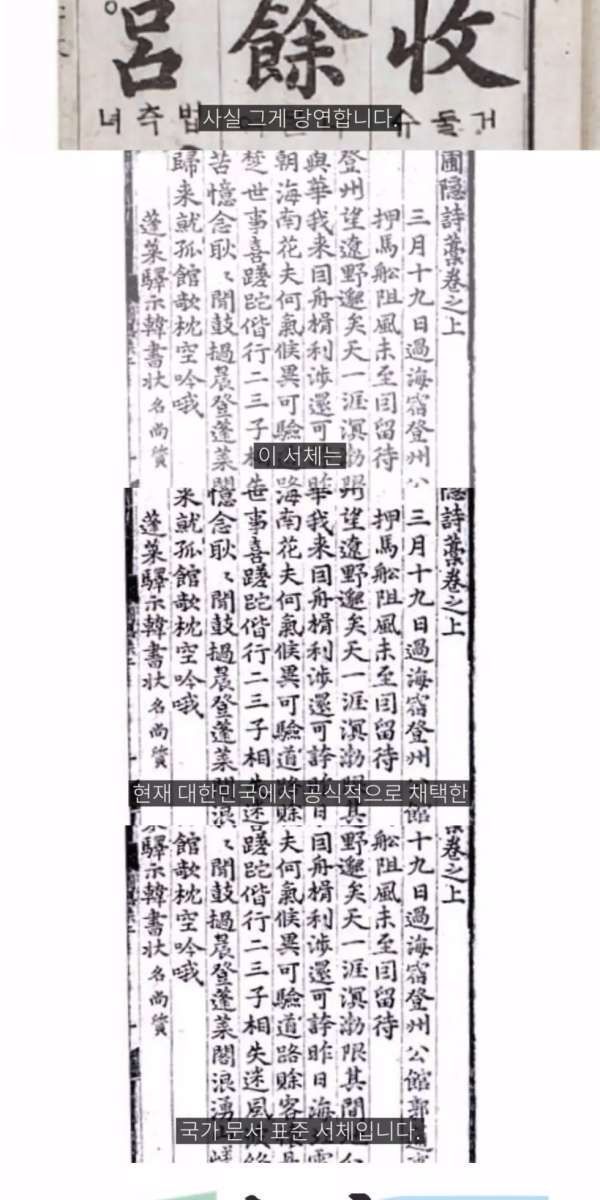 收餘呂
거둘슈
법츅녀
사실 그게 당연합니다.
圃隱詩藁卷之上
三月十九日過海宿登州公
押馬舩阻風未至囙留待
登州望遼野邈矣天一涯溟渤限
與華我来囙舟楫利涉還可昨
朝海南花夫何氣候異可驗路
楚世事喜蹉跎偕行二三子
苦憶念耿〻聞鼓撾晨登蓬莱閣
歸来就孤館欹枕空吟哦
蓬莱驛示韓書狀名尚質
이 서체는
隱詩藁卷之上
三月十九日過海宿登州公館
押馬舩阻風未至囙留待
州望遼野邈矣天一涯溟渤限其
華我来囙舟楫利涉還可誇
海南花夫何氣候異可驗道路賖
世事喜蹉跎偕行二三子相失迷
憶念耿〻聞鼓撾晨登蓬莱浪
来就孤館欹枕空吟哦
蓬莱驛示韓書狀名尚質
현재 대한민국에서 공식적으로 채택한
卷之上
十九日過海宿登州公館郭
舩阻風未至囙留待
野邈矣天一涯溟渤限其間
囙舟楫利涉還可誇昨日海
夫何氣候異可驗道路賖客
蹉跎偕行二三子相失迷風
〻聞鼓撾晨登蓬莱閣浪湧
館欹枕空吟哦
驛示韓書狀名尚質
국가 문서 표준 서체입니다.